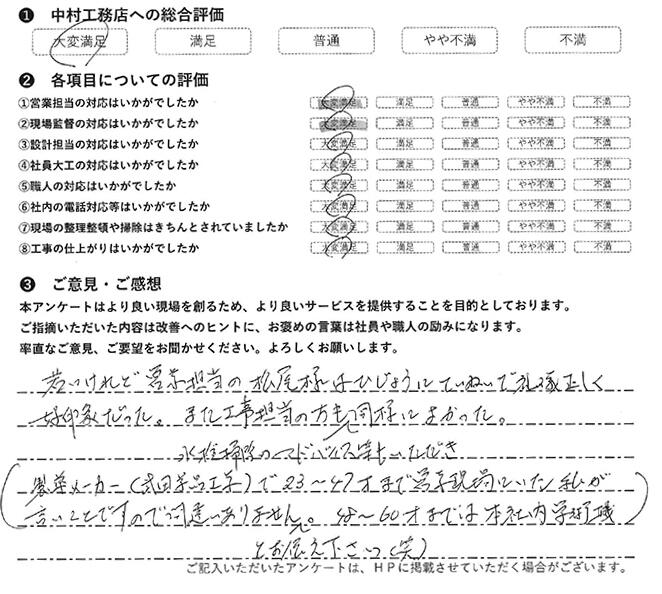 ❶ 中村工務店への総合評価
大変満足 満足 普通 やや不満 不満
❷ 各項目についての評価
①営業担当の対応はいかがでしたか 大変満足 満足 普通 やや不満 不満
②現場監督の対応はいかがでしたか 大変満足 満足 普通 やや不満 不満
③設計担当の対応はいかがでしたか 大変満足 満足 普通 やや不満 不満
④社員大工の対応はいかがでしたか 大変満足 満足 普通 やや不満 不満
⑤職人の対応はいかがでしたか 大変満足 満足 普通 やや不満 不満
⑥社内の電話対応等はいかがでしたか 大変満足 満足 普通 やや不満 不満
⑦現場の整理整頓や掃除はきちんとされていましたか 大変満足 満足 普通 やや不満 不満
⑧工事の仕上がりはいかがでしたか 大変満足 満足 普通 やや不満 不満
❸ ご意見・ご感想
本アンケートはより良い現場を創るため、より良いサービスを提供することを目的としております。
ご指摘いただいた内容は改善へのヒントに、お褒めの言葉は社員や職人の励みになります。
率直なご意見、ご要望をお聞かせください。よろしくお願いします。
若いけれど営業担当の松尾様はひじょうにていねいで礼儀正しく
好印象だった。また工事担当の方も同様によかった。
水栓掃除のアドバイス等もいただき
(製薬メーカー(武田薬品工業)で23〜47才まで営業現場にいた私が
言いことですので間違いありません。48〜60才までは本社内学術職
とお伝え下さい(笑))
ご記入いただいたアンケートは、HPに掲載させていただく場合がございます。